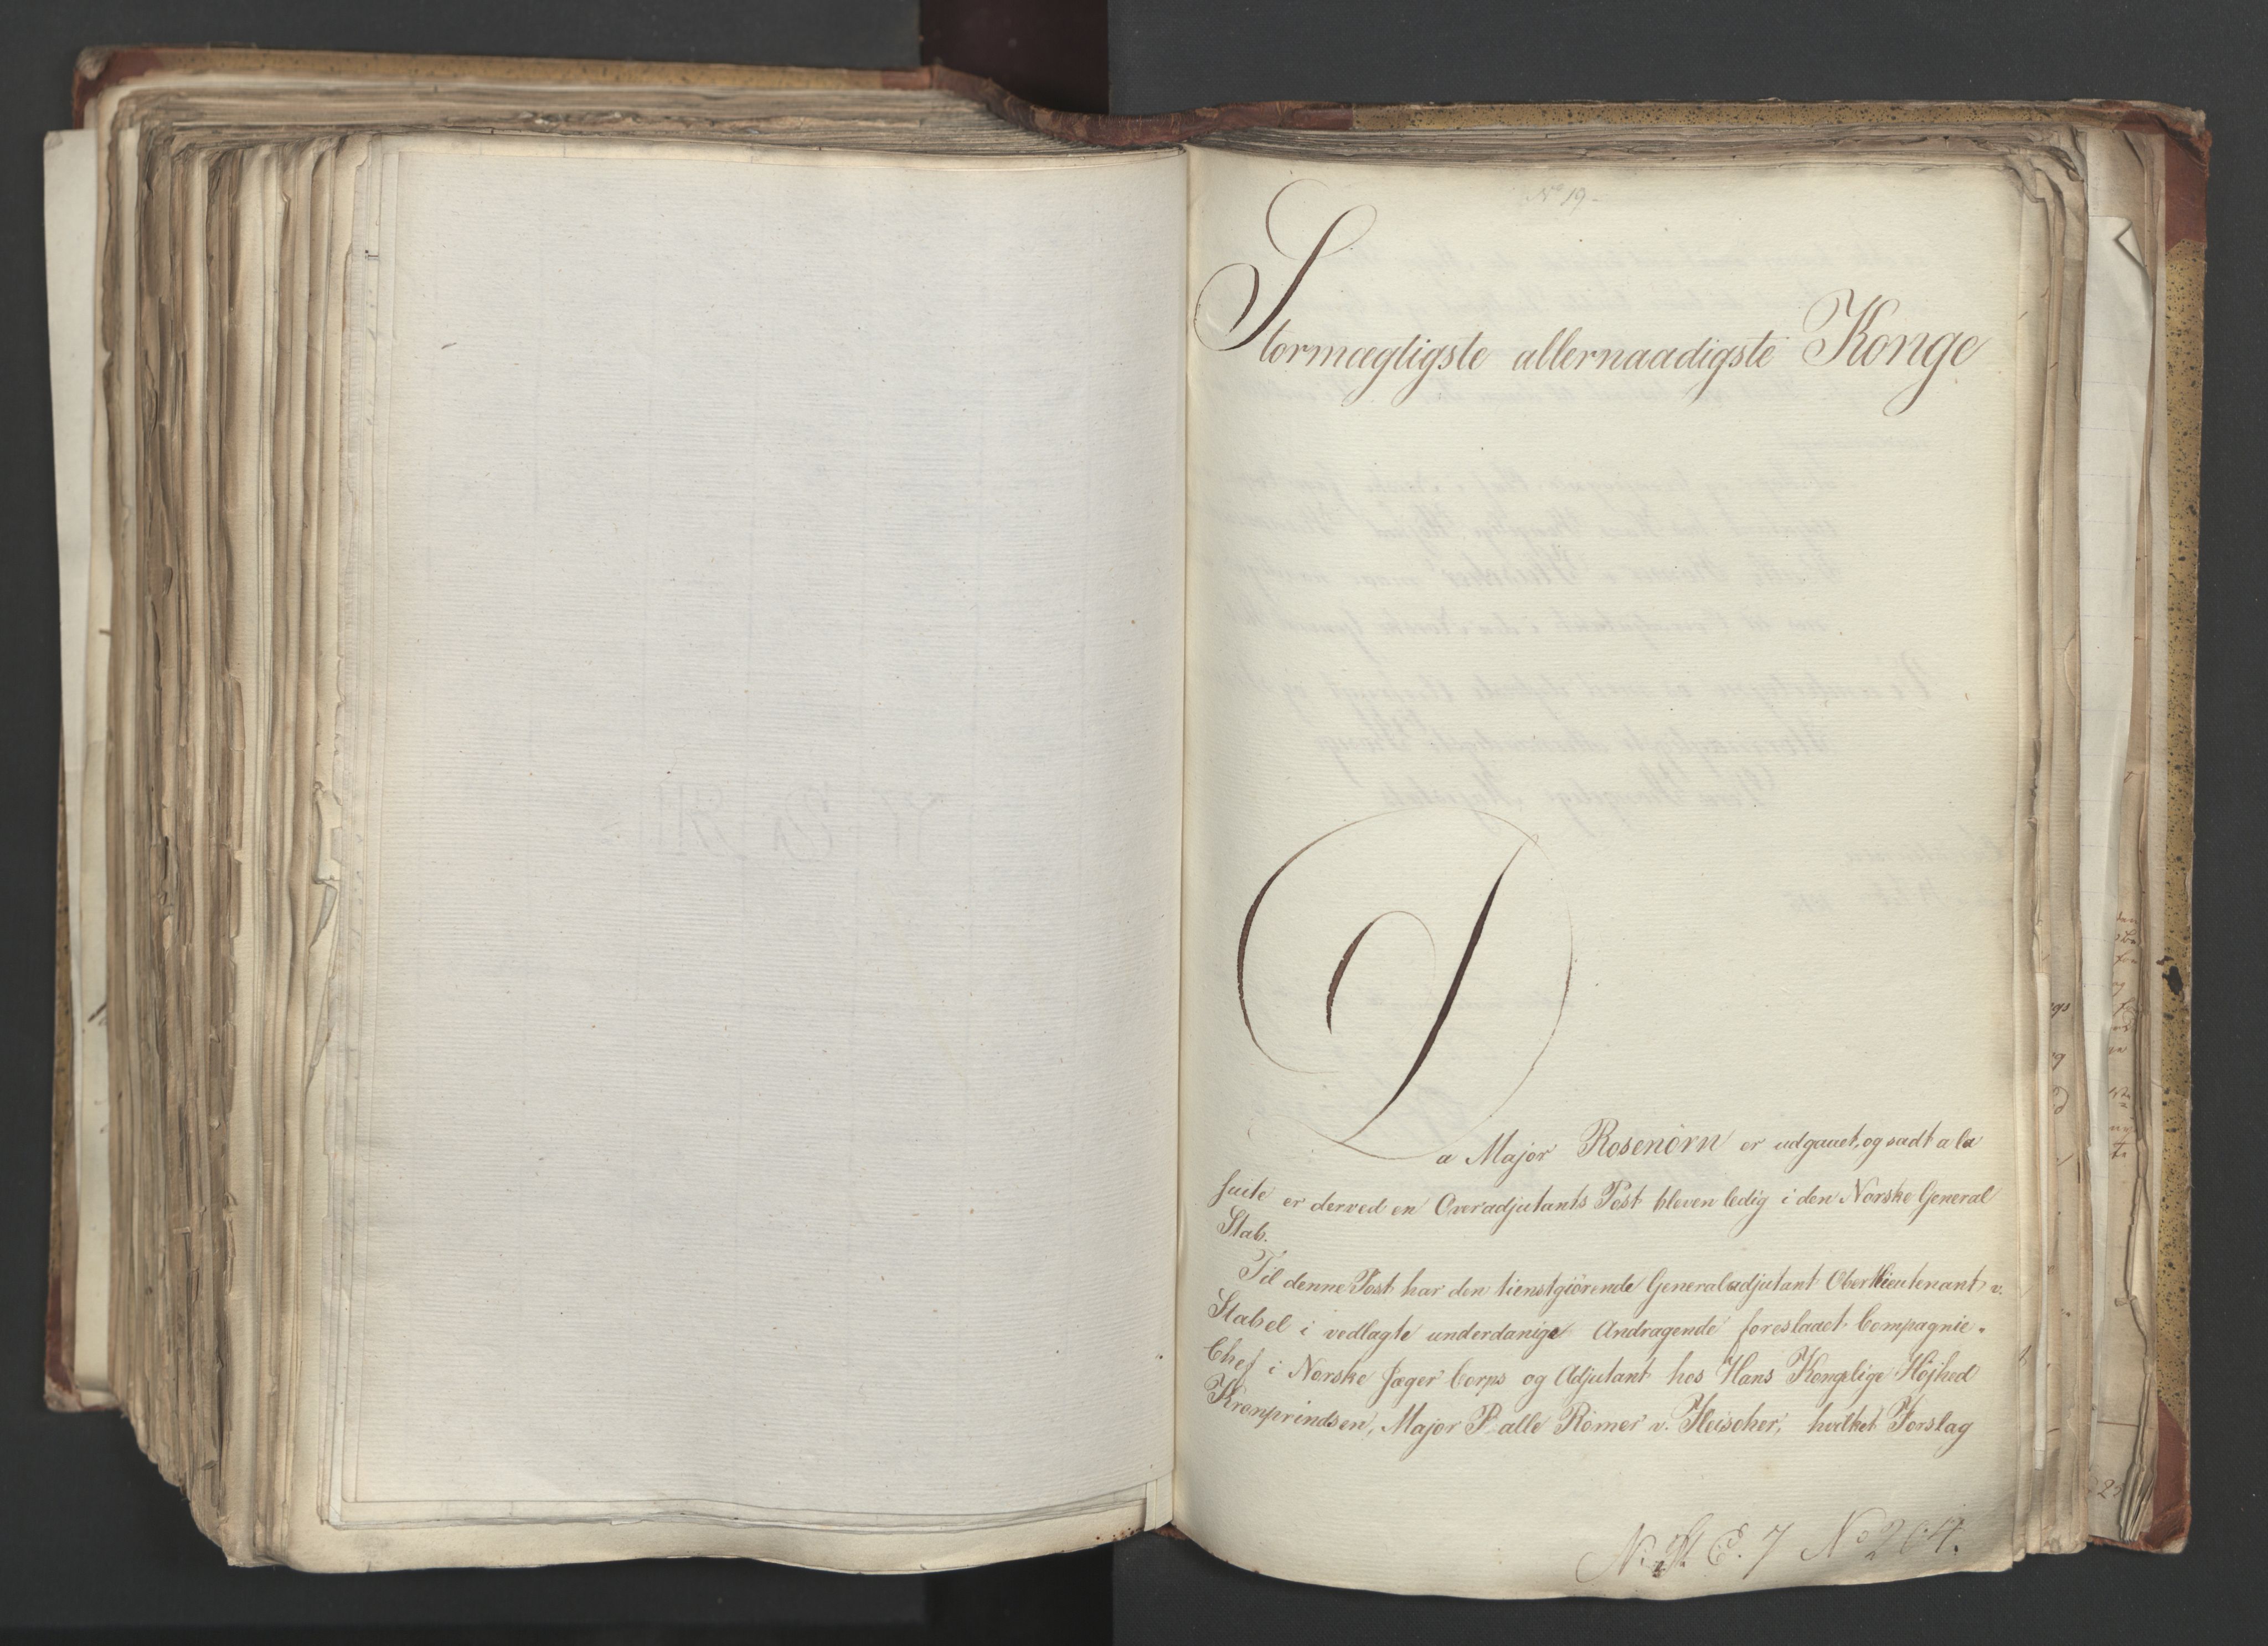 No 19.
Stormægtigste allernaadigste Konge
Da Major Rosenörn er udgaaet, og sadt a la
suite er derved en Overadjutants Post bleven ledig i den Norske General
Stab.
Til denne Post har den tienstgiörende Generaladjutant Oberstlieutenant v.
Stabel i vedlagte underdanige Andragende foreslaaet Compagnie-
Chef i Norske Jæger Corps og Adjutant hos Hans Kongelige Höjhed
Kronprindsen, Major Palle Römer v. Fleischer, hvilket Forslag
E. 7 No 264.